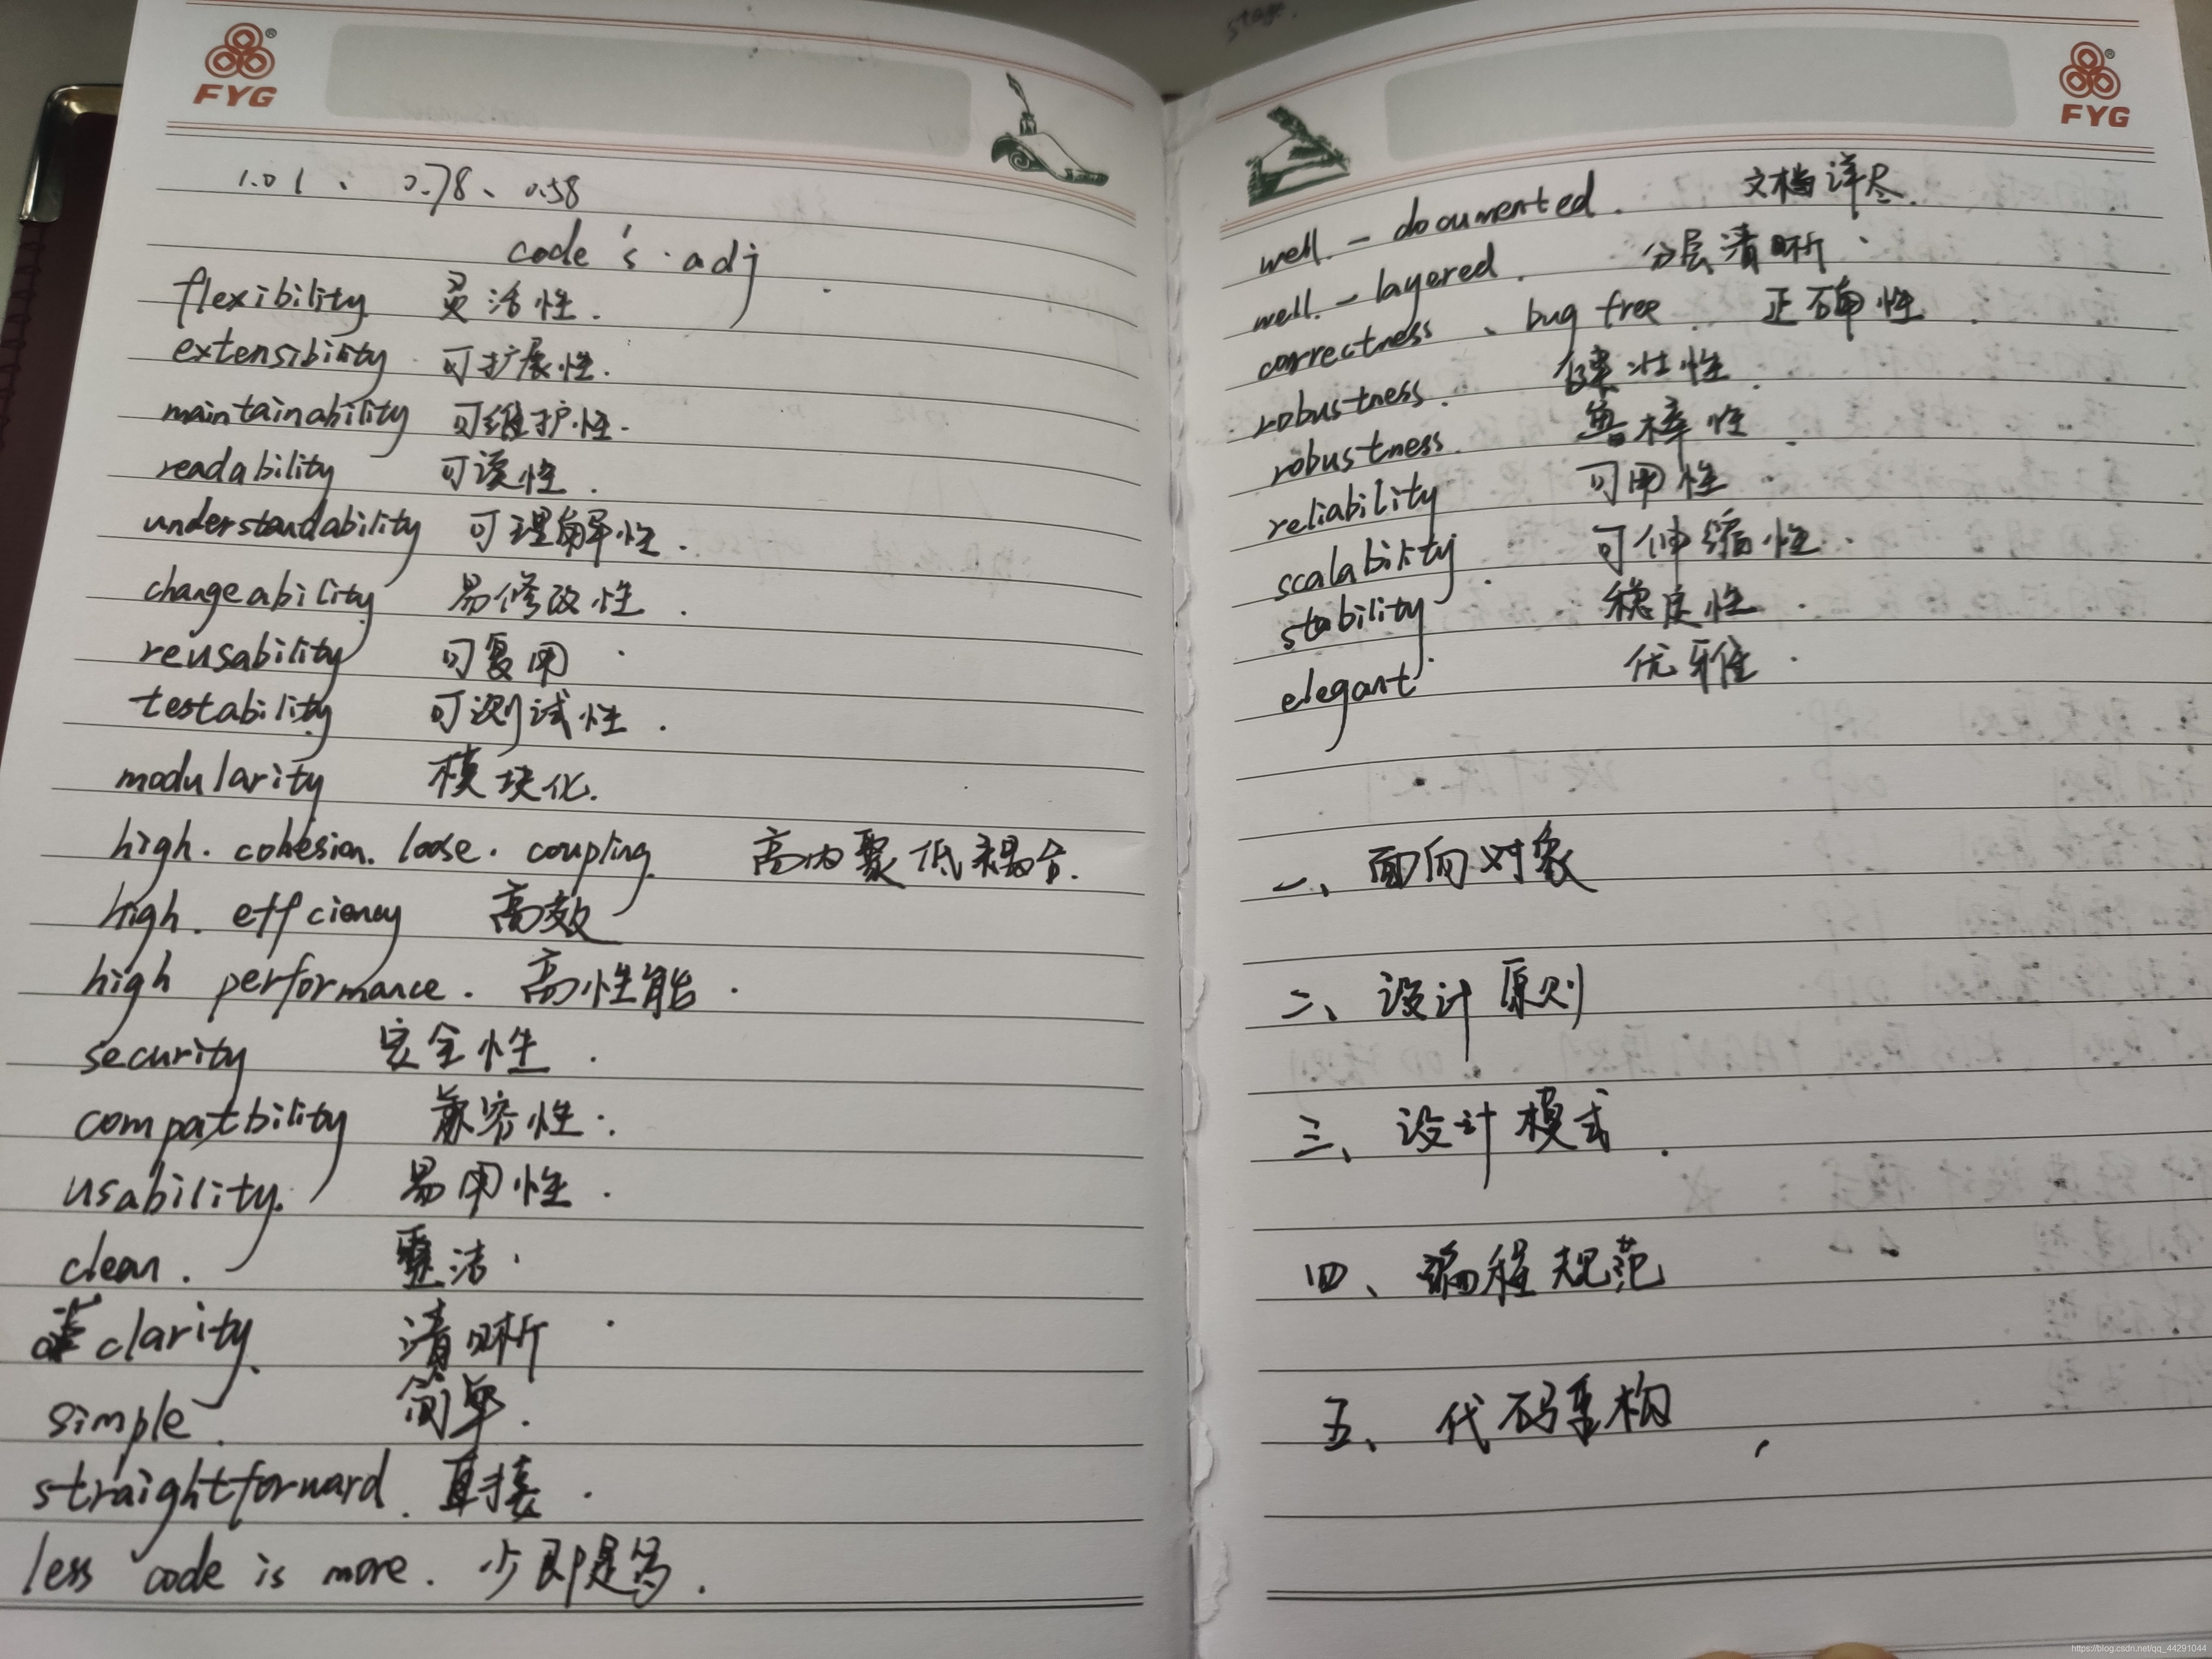 stage.
FYG
1.01、0.78、0.58
code's·adj.
flexibility 灵活性.
extensibility 可扩展性.
maintainability 可维护性.
readability 可读性.
understandability 可理解性.
changeability 易修改性.
reusability 可复用.
testability 可测试性.
modularity 模块化.
high. cohesion. loose. coupling. 高内聚低耦合.
high. effciency 高效
high performance. 高性能.
security 安全性.
compatbility 兼容性.
usability. 易用性.
clean. 整洁.
clarity. 清晰.
simple. 简单.
straightforward. 直接.
less code is more. 少即是多.
FYG
well-documented. 文档详尽.
well-layered. 分层清晰.
correctness、bug free. 正确性.
robustness. 健壮性.
robustness. 鲁棒性.
reliability 可用性.
scalability. 可伸缩性.
stability. 稳定性.
elegant 优雅.
一、面向对象
二、设计原则
三、设计模式.
四、编程规范
五、代码重构,
https://blog.csdn.net/qq_44291044